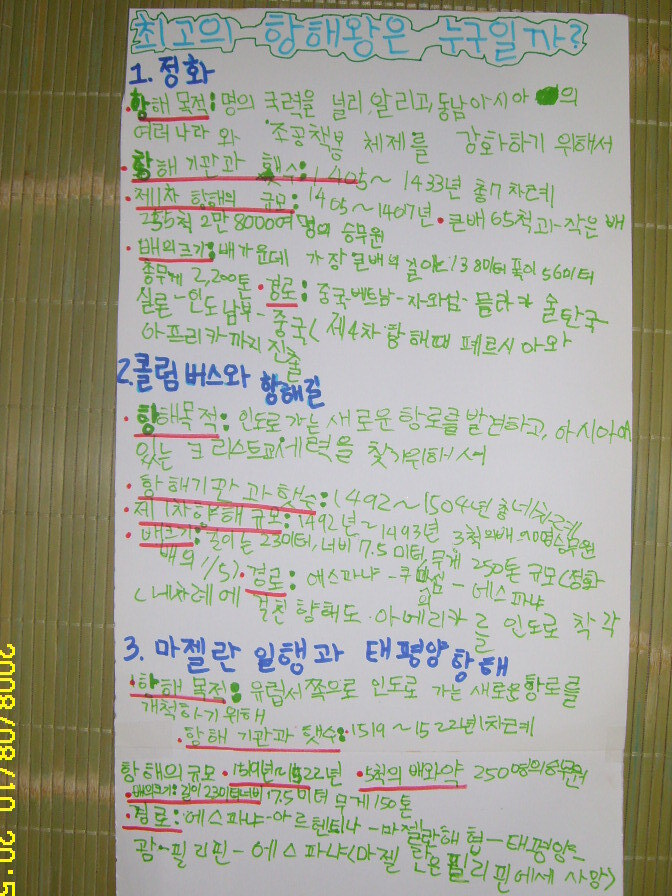 최고의 항해왕은 누구일까?
1. 정화
·항해 목적: 명의 국력을 널리 알리고, 동남아시아 의
여러나라 와 조공책봉 체제를 강화하기 위해서
·항해 기관과 횟수: 1405~1433년 총7차례
·제1차 항해의 규모: 1405~1407년 ·큰배 65척과 작은 배
255척 2만 8000여 명의 승무원
·배의크기: 배가운데 가장 큰배의 길이는 138미터 폭이 56미터
총무게 2,200톤 ·경로: 중국-베트남-자와섬-믈라카 술탄국
실론-인도남부-중국(제4차 항해때 페르시아와
아프리카까지 진출
2.콜럼버스와 항해길
·항해목적: 인도로 가는 새로운 항로를 발견하고, 아시아에
있는 크리스트교세력을 찾기위해서
·항해기관과 횟수: 1492~1504년 총네차례
·제1차항해 규모: 1492년~1493년 3척의배 90명승무원
·배크기: 길이는 23미터, 너비 7.5미터, 무게 250톤 규모(정화
배의 1/5) ·경로: 에스파냐-쿠바섬-에스파냐
(네차례에 걸친 항해도 아메리카를 인도로 착각
3. 마젤란 일행과 태평양 항해
·항해 목적: 유럽서쪽으로 인도로 가는 새로운항로를
개척하기위해
·항해 기관과 횟수: 1519~1522년 1차례
항해의 규모 ·1519년~1522년 ·5척의 배와약 250명의승무원
·배의크기: 길이23미터너비 7.5미터 무게 150톤
·경로: 에스파냐-아르헨티나-마젤란해협-태평양-
괌-필리핀-에스파냐(마젤란은 필리핀에세 사망)
2008/08/10 20:5